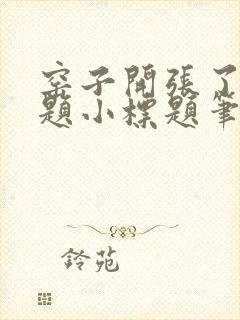 窑子開張了
題小標題筆
鈴苑